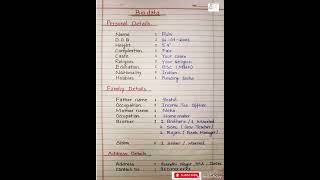 Bio data
Personal Details
Name : Puhi
D.O.B :
Height : 5'4"
Complexion : Fair
Caste : Your caste
Religion : Your Religion
Education : BSC (Maths)
Nationality : Indian
Hobbies : Reading books
Family Details
Father name :
Occupation : Income Tax Officer
Mother name : Neha
Occupation : Home maker
Brother : 2 Brothers / 1 Married
1. Sonu (Teacher)
2. Rajan (Bank Manager)
Sister : 1 Sister / Married
Address Details
Address : Gandhi Nagar
Contact No :